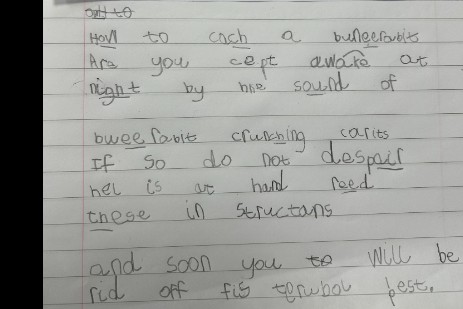 out to
How to cach a buneerabits
Are you cept awake at
night by the sound of
bweerabit crunching carits
If so do not despair
hel is at hand reed
these in structans
and soon you to will be
rid off fis terubol pest.